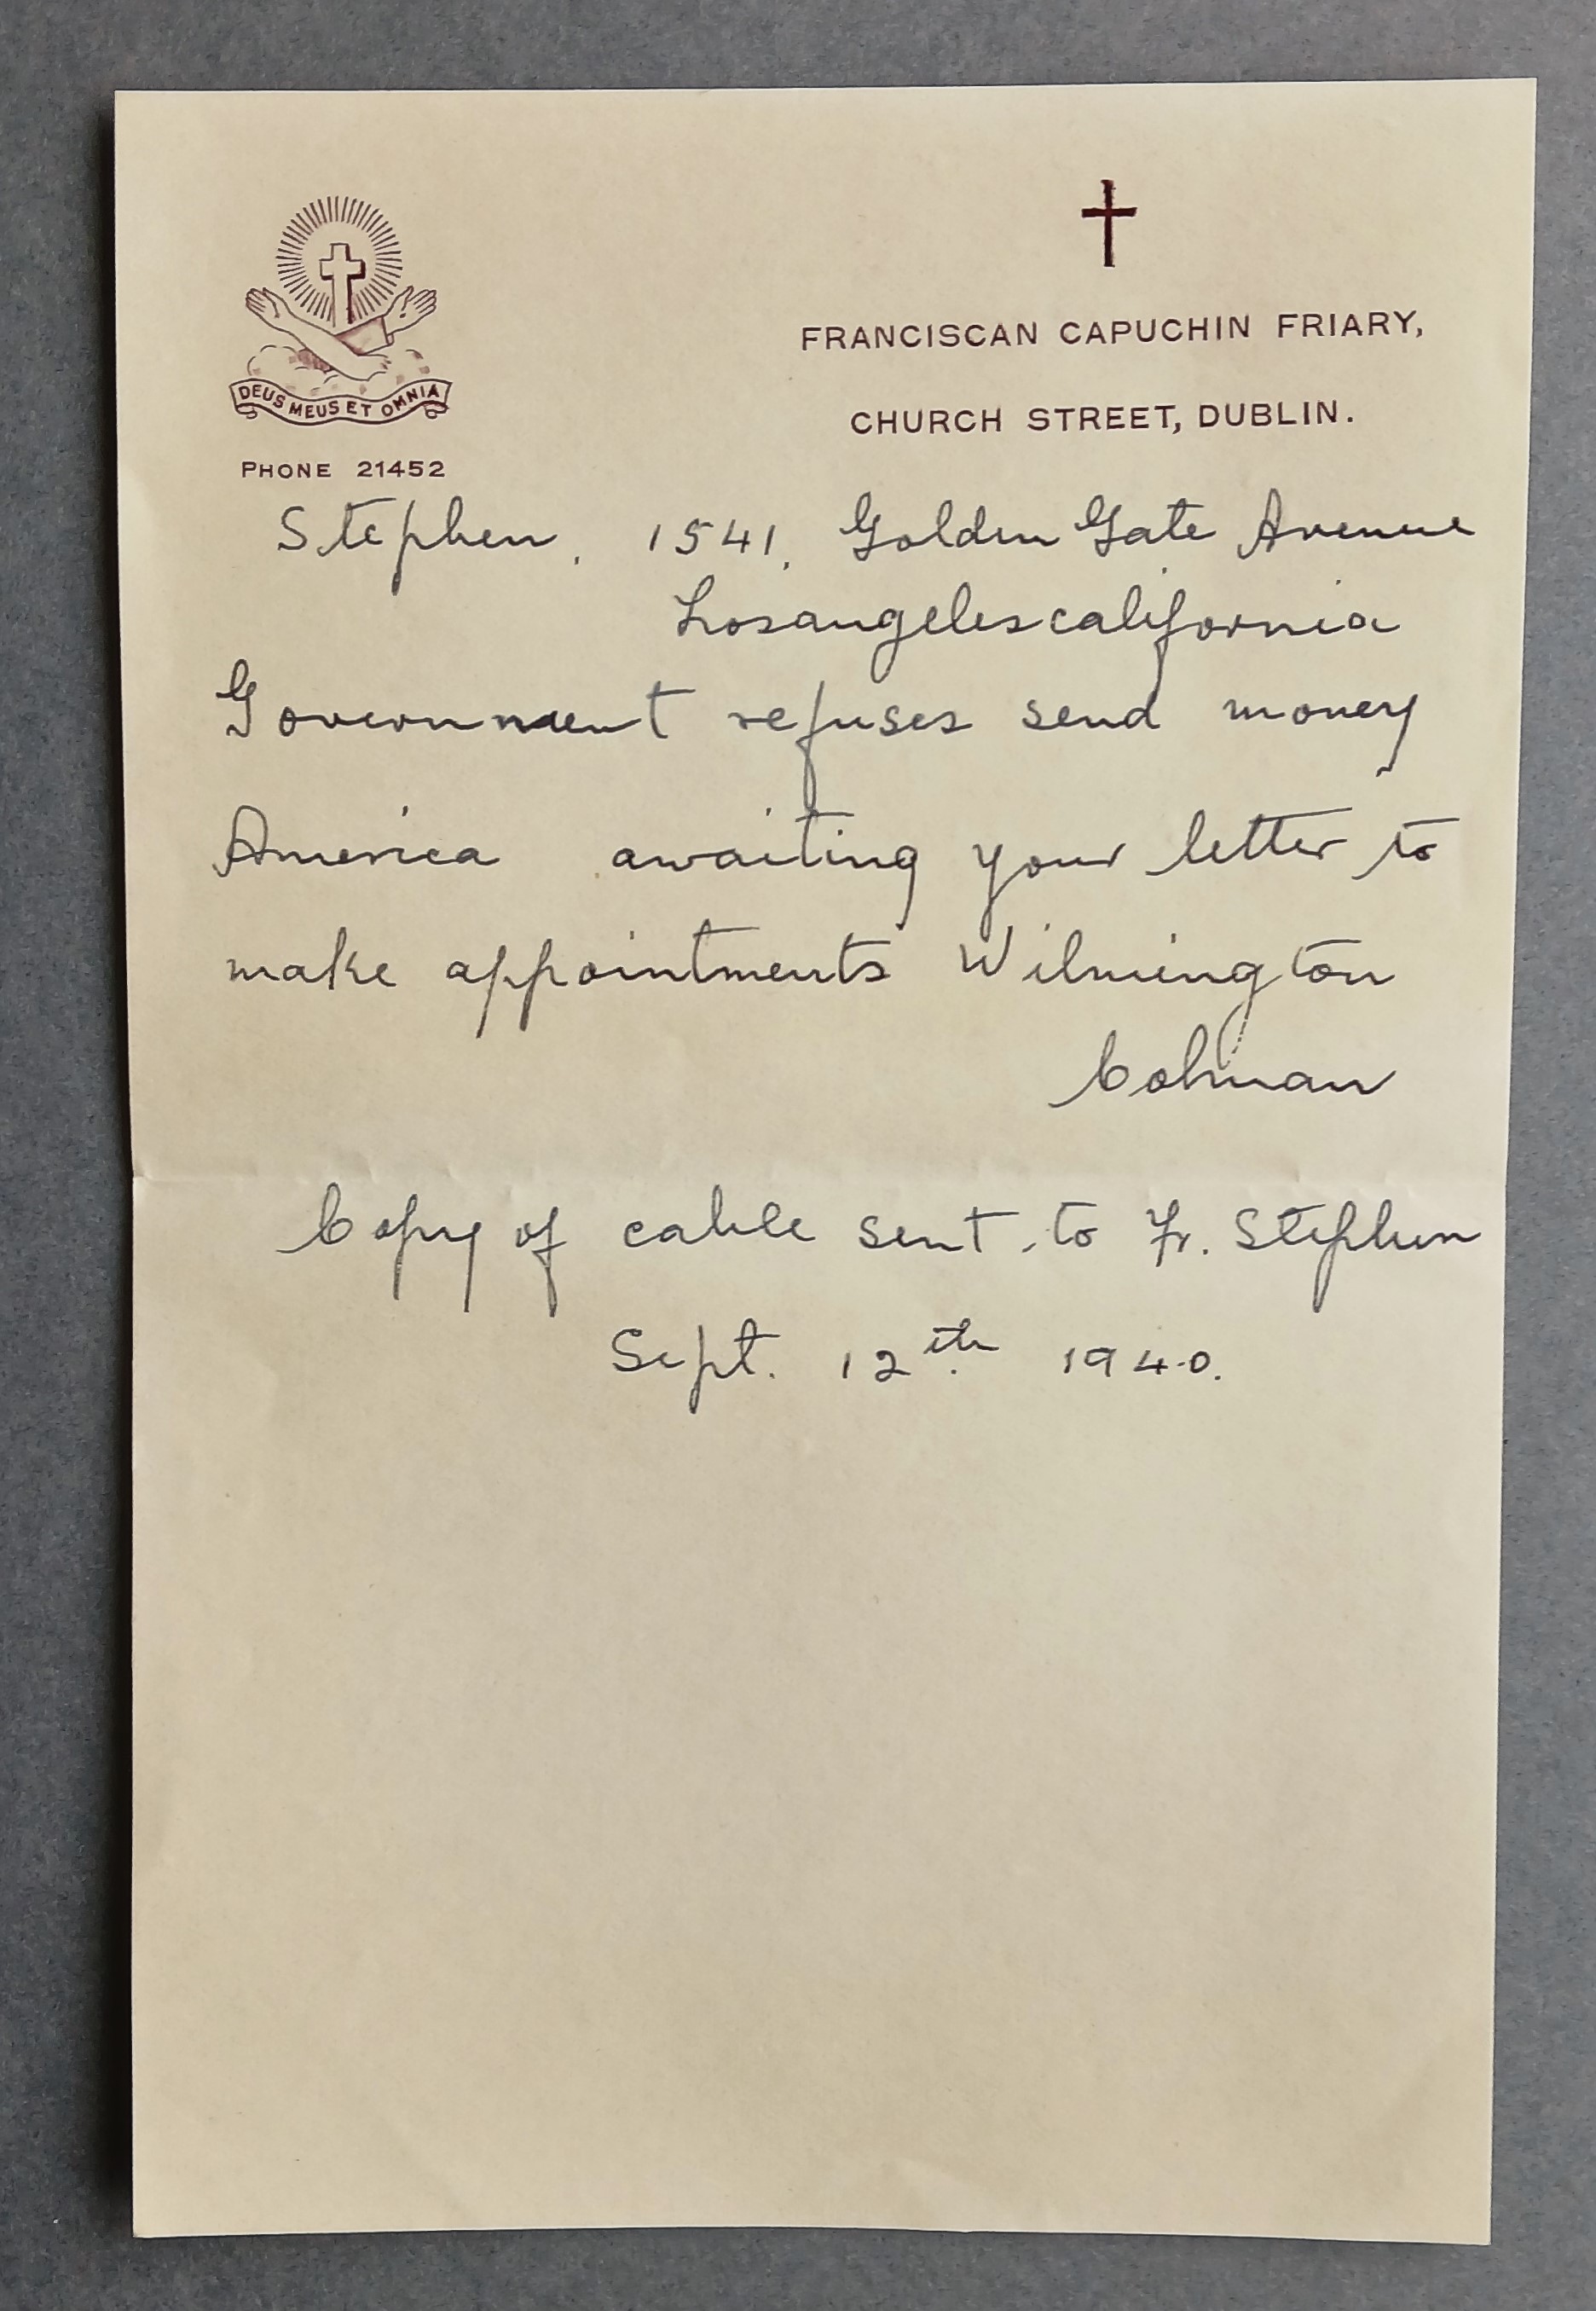 DEUS MEUS ET OMNIA
PHONE 21452
FRANCISCAN CAPUCHIN FRIARY,
CHURCH STREET, DUBLIN.
Stephen. 1541. Golden Gate Avenue
Losangelescalifornia
Government refuses send money
America awaiting your letter to
make appointments Wilmington
Colman
Copy of cable sent to Fr. Stephen
Sept. 12th 1940.